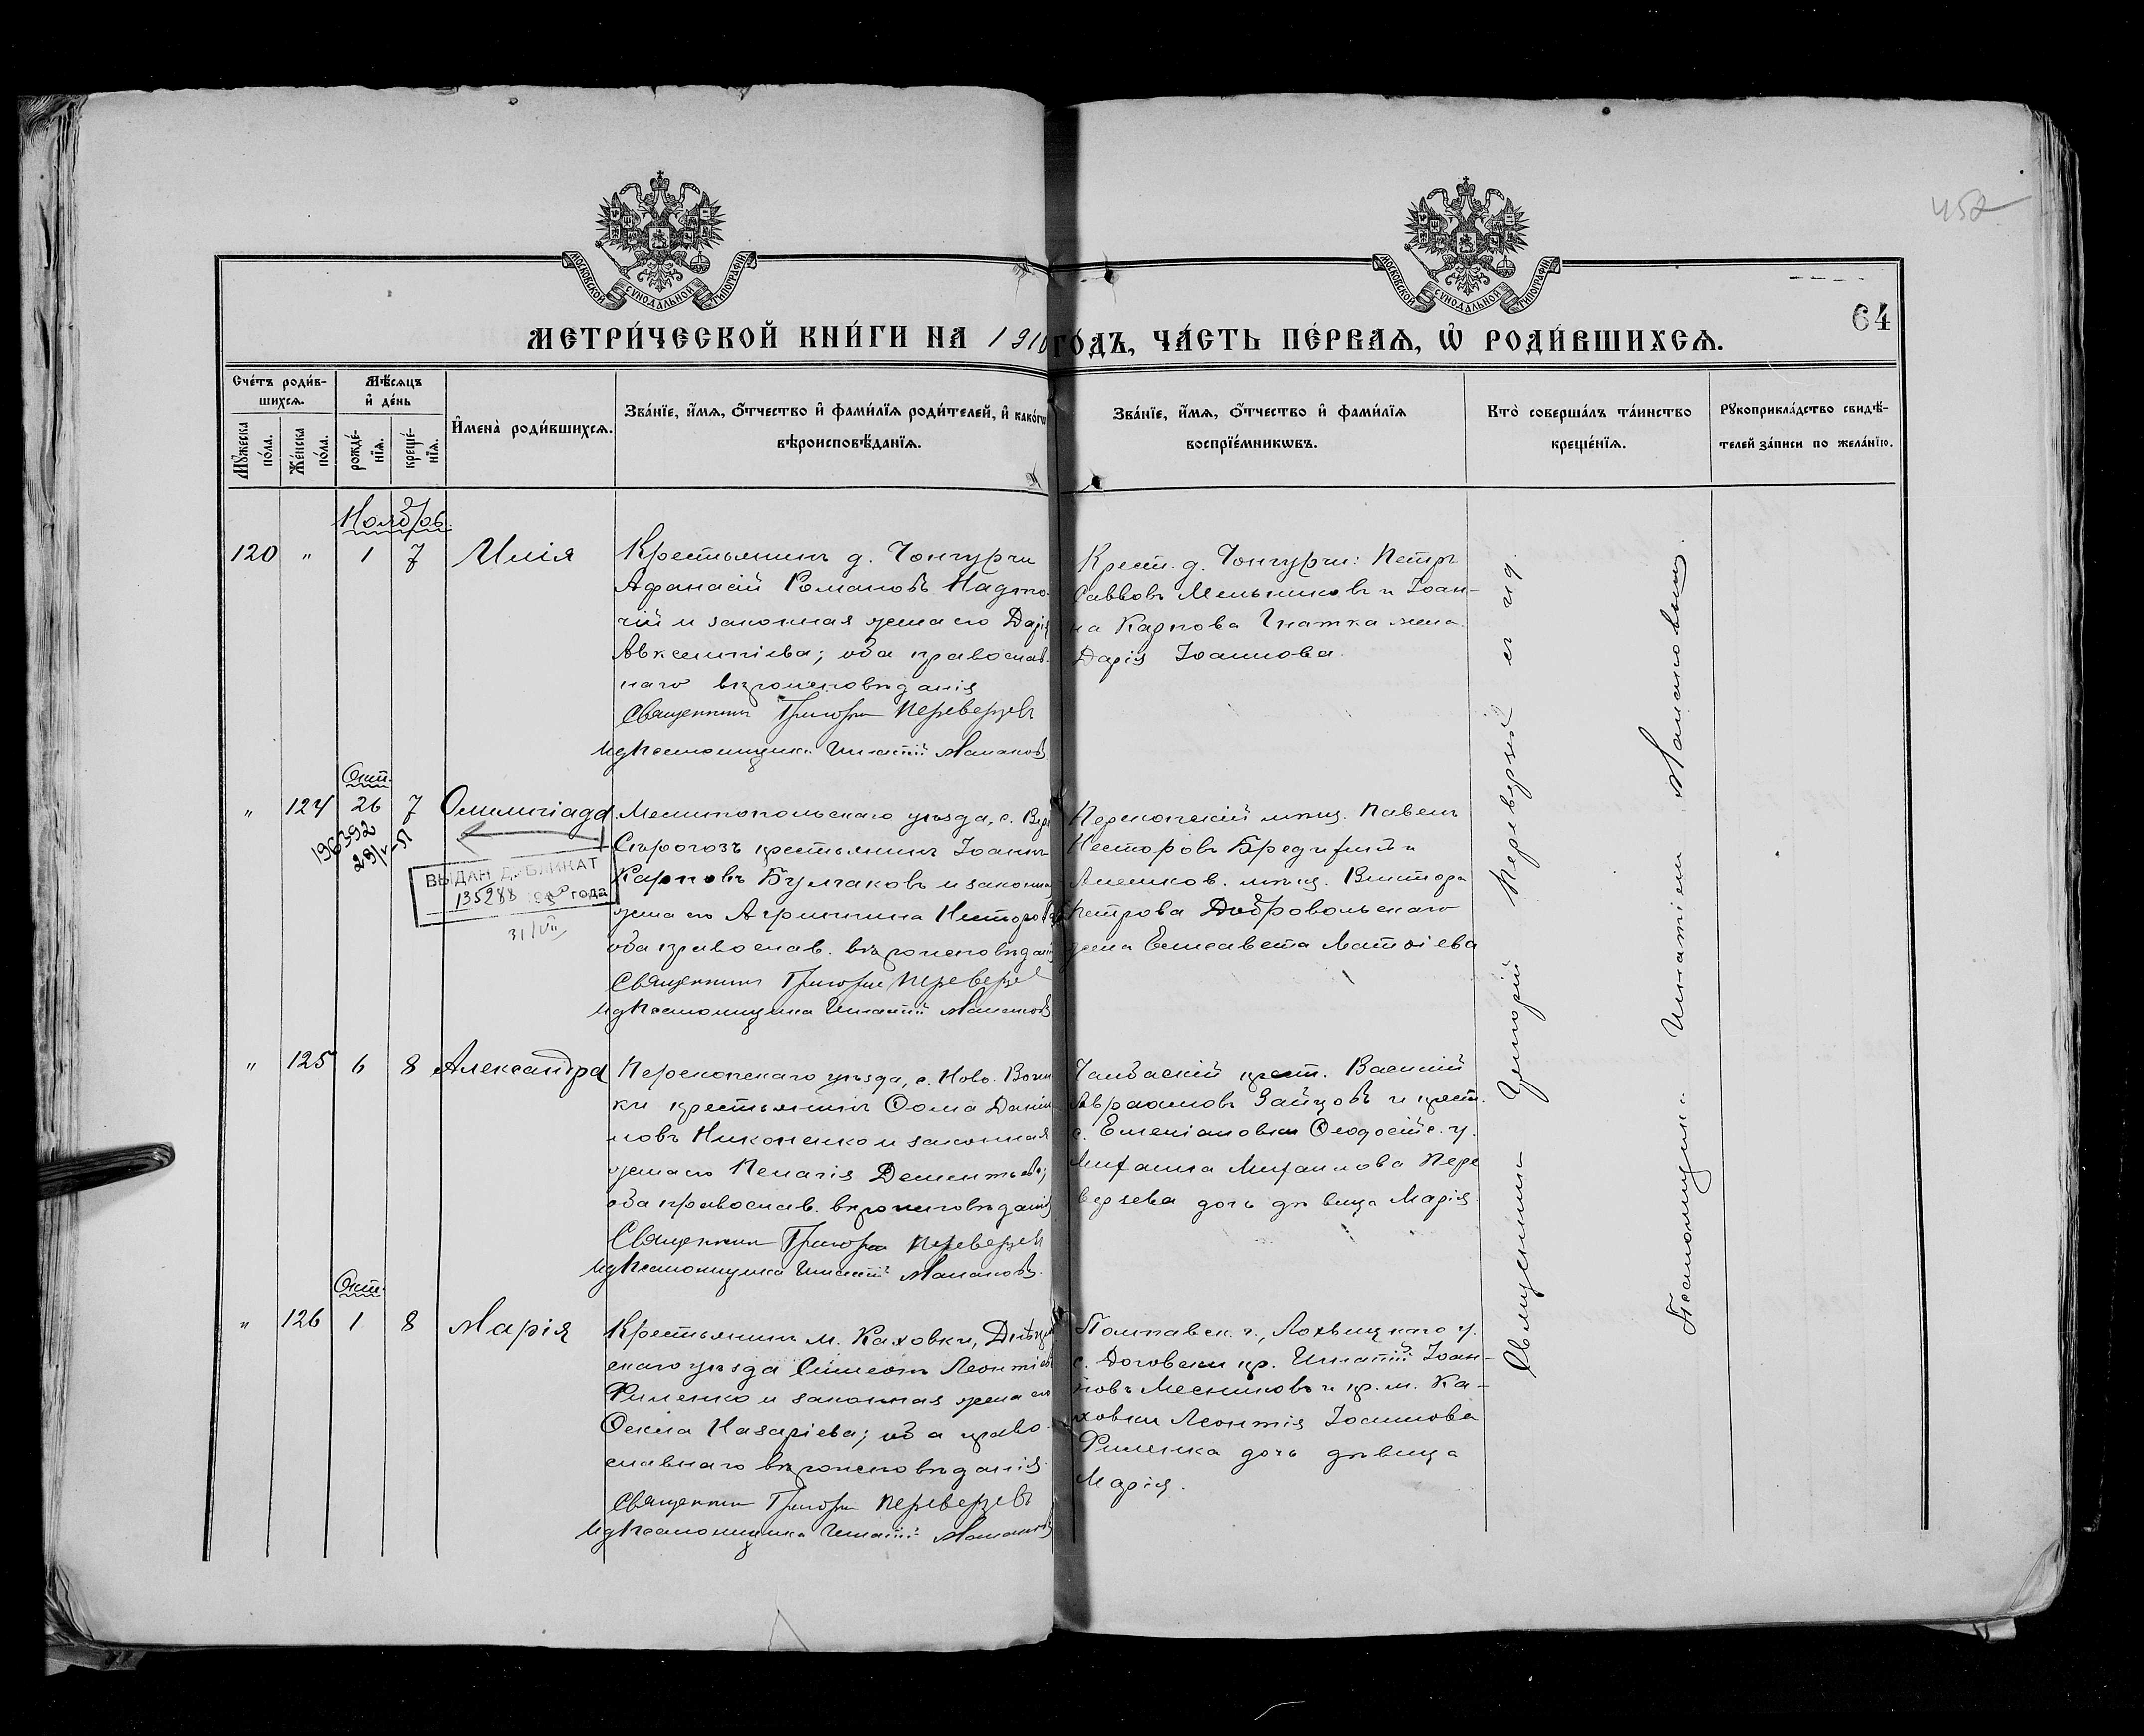 452
МОСКОВСКОЙ СѴНОДАЛЬНОЙ ТИПОГРАФІИ
МОСКОВСКОЙ СѴНОДАЛЬНОЙ ТИПОГРАФІИ
64
МЕТРИ́ЧЕСКОЙ КНИ́ГИ НА 1910 ГО́ДЪ, ЧА́СТЬ ПЕ́РВАѦ, Ѡ҆ РОДИ́ВШИХСѦ.
Сче́тъ роди́в-
шихсѧ.
Мꙋ́жеска по́ла.
Же́нска по́ла.
Мѣ́сѧцъ
и҆ де́нь
рожде́-
нїѧ.
креще́-
нїѧ.
И҆мена̀ роди́вшихсѧ.
Зва́нїе, и҆́мѧ, ѻ҆́тчество и҆ фами́лїѧ роди́телей, и҆ како́гѡ
вѣроисповѣ́данїѧ.
Зва́нїе, и҆́мѧ, ѻ҆́тчество и҆ фами́лїѧ
воспрїе́мникѡвъ.
Кто̀ соверша́лъ та́инство
креще́нїѧ.
Рꙋкоприкла́дство свидѣ́-
телей за́писи по жела́нїю.
Ноябрь.
120 " 1 7 Илія
Крестьянинъ д. Чонгурчи
Афанасій Романовъ Надто-
чій и законная жена его Дарія
Авксентіева; оба православ-
наго вѣроисповѣданія
Священникъ Григорій Переверзевъ
Ид Псаломщика Игнатій Манановъ
Крест. д. Чонгурчи: Петръ
Савовъ Мельниковъ и Іоан-
на Карпова Гнатка жена
Дарія Іоаннова.
Окт.
" 124 26 7 Олимпіада
196392
29/V-51
ВЫДАН ДУБЛИКАТ
135288 195 года
31/VII
Мелитопольскаго уѣзда, с. Верх.
Сѣрогозъ крестьянинъ Іоаннъ
Карповъ Булгаковъ и законная
жена его Агриппина Несторова
оба православ. вѣроисповѣданія
Священникъ Григорій Переверзевъ
Ид Псаломщика Игнатій Манановъ
Перекопскій мѣщ. Павелъ
Несторовъ и
Алешков. мѣщ. Виктора
Петрова Добровольскаго
жена Елисавета Матѳіева
" 125 6 8 Александра
Перекопскаго уѣзда, с. Ново.
ки крестьянинъ Ѳома Даніи-
ловъ Никоненко и законная
жена его Пелагія Дементьева;
оба православ. вѣроисповѣданія
Священникъ Григорій Переверзевъ
Ид Псаломщика Игнатій Манановъ
крест. Василій
Авраамовъ Зайцовъ и крест.
с. Емеліановки Ѳеодосійс. у.
Михаила Михаилова Пере
верзева дочь дѣвица Марія.
Окт.
" 126 1 8 Марія
Крестьянинъ м. Каховки, Днѣпров-
скаго уѣзда Симеонъ Леонтіевъ
Филенко и законная жена его
Оекла Назаріева; оба право-
славнаго вѣроисповѣданія.
Священникъ Григорій Переверзевъ
Ид Псаломщика Игнатій Манановъ
Полтавск. г., Лохвицкаго у.
с. кр. Игнатій Іоан-
новъ Месниковъ и кр. м. Ка-
ховки Леонтія Іоаннова
Филенка дочь дѣвица
Марія.
Священникъ Григорій Переверзевъ съ и. д.
Псаломщика Игнатіемъ Мананковымъ.